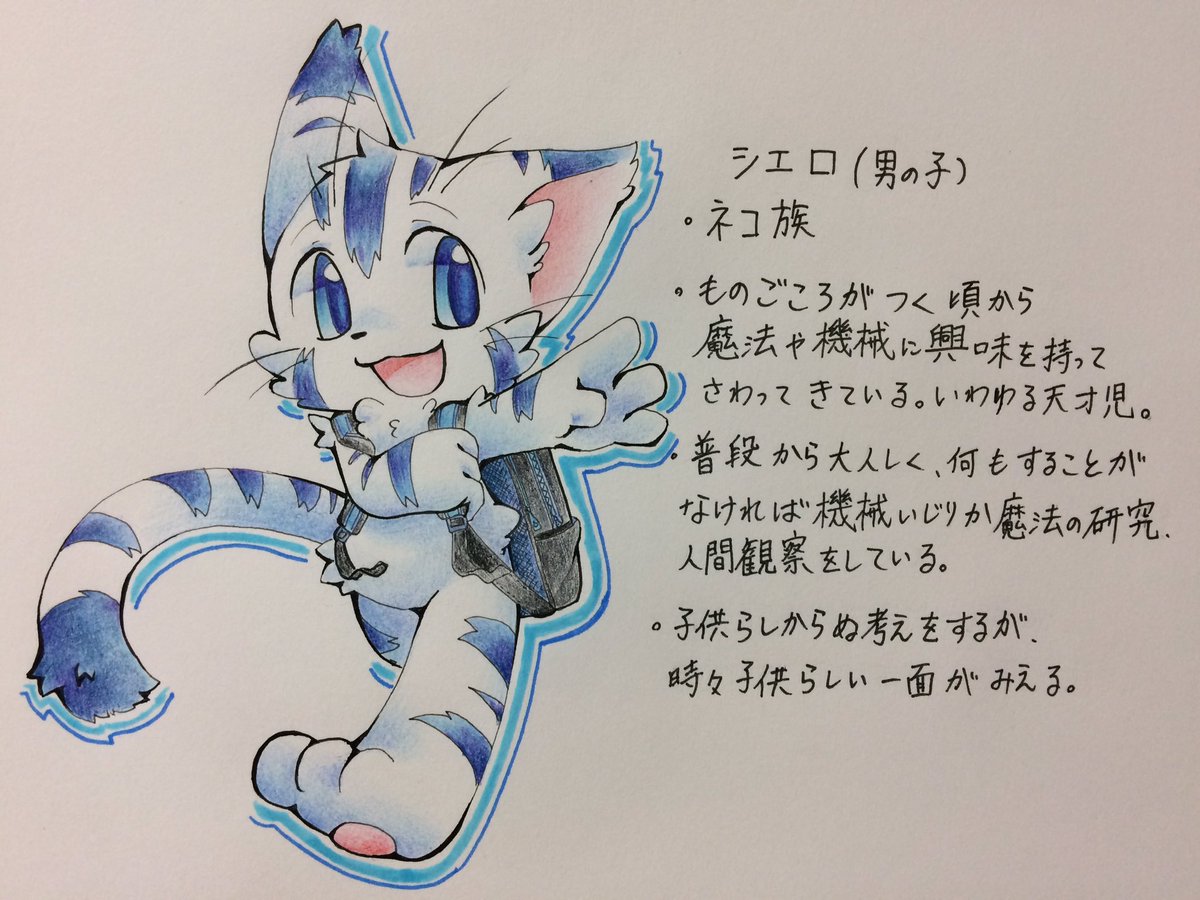 シエロ(男の子)
・ネコ族
・ものごころがつく頃から
魔法や機械に興味を持って
さわってきている。いわゆる天才児。
・普段から大人しく、何もすることが
なければ機械いじりか魔法の研究、
人間観察をしている。
・子供らしからぬ考えをするが、
時々子供らしい一面がみえる。